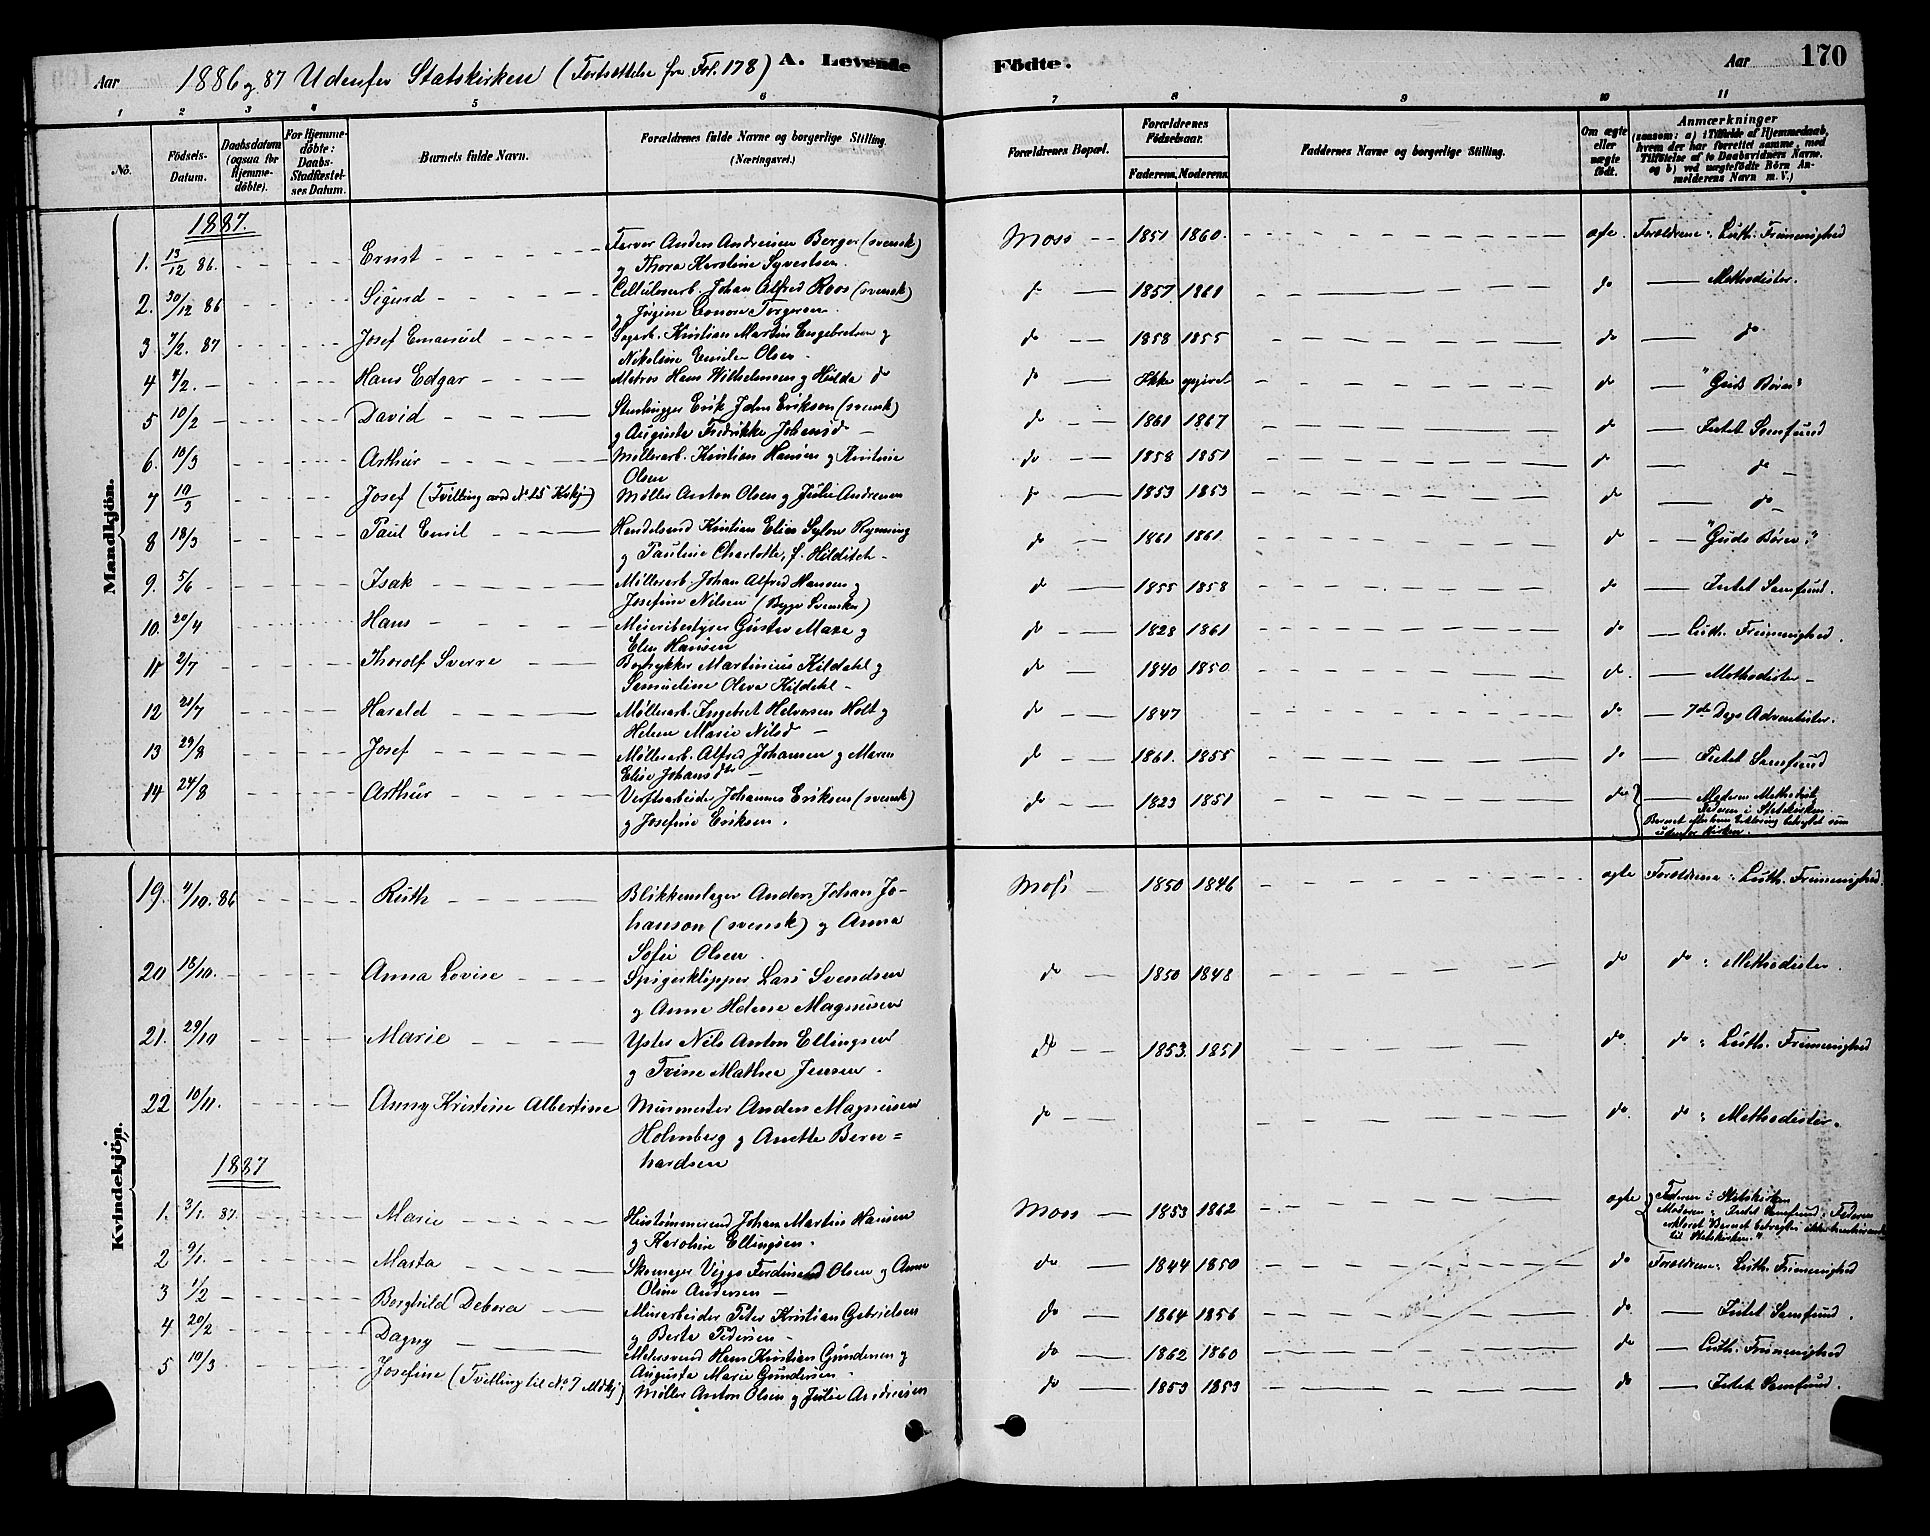 Aar 1886 og 87 Udenfor Statskirken (Fortsættelse fra Fol. 178) A. Levende Födte. Aar 170
1 2 3 4 5 6 7 8 9 10 11
No. Födsels-Datum. Daabsdatum (ogsaa for Hjemmedöbte). For Hjemmedöbte: Daabs-Stadfæstelses Datum. Barnets fulde Navn. Forældrenes fulde Navne og borgerlige Stilling. (Næringsvei.) Forældrenes Bopæl. Forældrenes Födselsaar. Faderens. Moderens. Faddernes Navne og borgerlige Stilling. Om ægte eller uægte födt. Anmærkninger (saasom: a) i Tilfælde af Hjemmedaab, hvem der har forrettet samme, med Tilföielse af to Daabsvidners Navne, og b) ved uægtefödte Börn Anmelderens Navn m. V.)
Mandkjön.
1887.
1. 13/12 86. Ernst Farver Anders Andreasen Berger (svensk) Moss 1851 1860. ægte. Forældrene: Luth. Frimenighed
og Thora Karoline Syvertsen.
2. 30/12 86 Sigurd Cellulosearb. Johan Alfred Roos (svensk) do 1857 1861 do Methodister.
og Jørgine Leonore Torgersen
3 7/2. 87 Josef Emanuel Sagarb. Kristian Martin Engebretsen og do 1858 1855 do do
Nikoline Emilie Olsen.
4 4/2. Hans Edgar Matros Hans Wilhelmsen og Hilda do do Ikke opgivet do "Guds Børn"
5 10/2 David Stenhugger Erik John Erikson (svensk) do 1861 1867 do Intet Samfund
og Augusta Fredrikke Johansd
6. 10/3 Arthur Møllerarb. Kristian Hansen og Kristine do 1858 1851 do do
Olsen
7 10/3 Josef (Tvilling med No 15 Kvkj) Møller Anton Olsen og Julie Andresen do 1853 1853 do do
8 18/3 Paul Emil Handelsmd Kristian Elias Sylow Rynning do 1861 1861 do "Guds Børn."
og Pauline Charlotte, f. Hilditch
9. 5/6 Isak Møllerarb. Johan Alfred Hansen og do 1855 1858 do Intet Samfund.
Josefine Nilsen (Begge Svenske)
10. 20/4 Hans Meieribestyrer Gustav Maxe og do 1828 1861 do Luth. Frimenighed.
Elen Hansen
11 2/7 Thorolf Sverre Bogtrykker Martinius Kildahl og do 1840 1850 do. Methodister
Samueline Olava Kildahl
12 21/7 Harald Møllerarb. Ingebret Halvorsen Holt og do 1847 do 7de Dags Adventister.
Helene Marie Nilsd
13 29/8 Josef Møllerarb. Alfred Johansen og Maren do 1861. 1855 do Intet Samfund
Elise Johansdtr
14 24/8 Arthur Verftsarbeider Johannes Eriksen (svensk) do 1823 1851 do Moderen Methodist,
og Josefine Eriksen. Faderen i Statskirken.
Barnet efter hans Erklæring betragtet som
udenfor Kirken.
Kvindekjön.
19. 4/10. 86 Ruth Blikkenslager Anders Johan Jo- Moss 1850 1846 ægte Forældrene: Luth. Frimenighed.
hanson (svensk) og Anna
Sofie Olsen.
20 18/10. Anna Lovise Spigerklipper Lars Svendsen do 1850 1848 do do: Methodister.
og Anne Helene Magnusen
21. 29/10 Marie Yster Nils Anton Ellingsen do 1853. 1851 do. do: Luth. Frimenighed
og Trine Mathea Jensen.
22 10/11. Anny Kristine Albertine Murmester Anders Magnusen do do. do: Methodister.
Holmberg og Anette Bern=
hardsen
1887
1. 3/1. 87. Marie Hustømmermd Johan Martin Hansen Moss 1853 1862 ægte Faderen i Statskirken
og Karoline Ellingsen. Moderen: Intet Samfund. Faderen
erklæret Barnet betragtes ikke henhørende
til Statskirken."
2 9/1. Marta Skomager Viggo Ferdinand Olsen og Anne do 1844 1850 do Forældrene: Luth. Frimenighed
Oline Andersen
3 1/2 Borghild Debora Murarbeider Peter Kristian Gabrielsen do 1864 1856 do. Intet Samfund.
og Berta Pedersen
4 20/2 Dagny Malersvend Hans Kristian Gundersen og do 1862 1860 do Luth. Frimenighed
Augusta Marie Gundersen.
5 10/3 Josefine (Tvilling til No 7 Mdkj) Møller Anton Olsen og Julie Andresen do 1853 1853 do Intet Samfund.